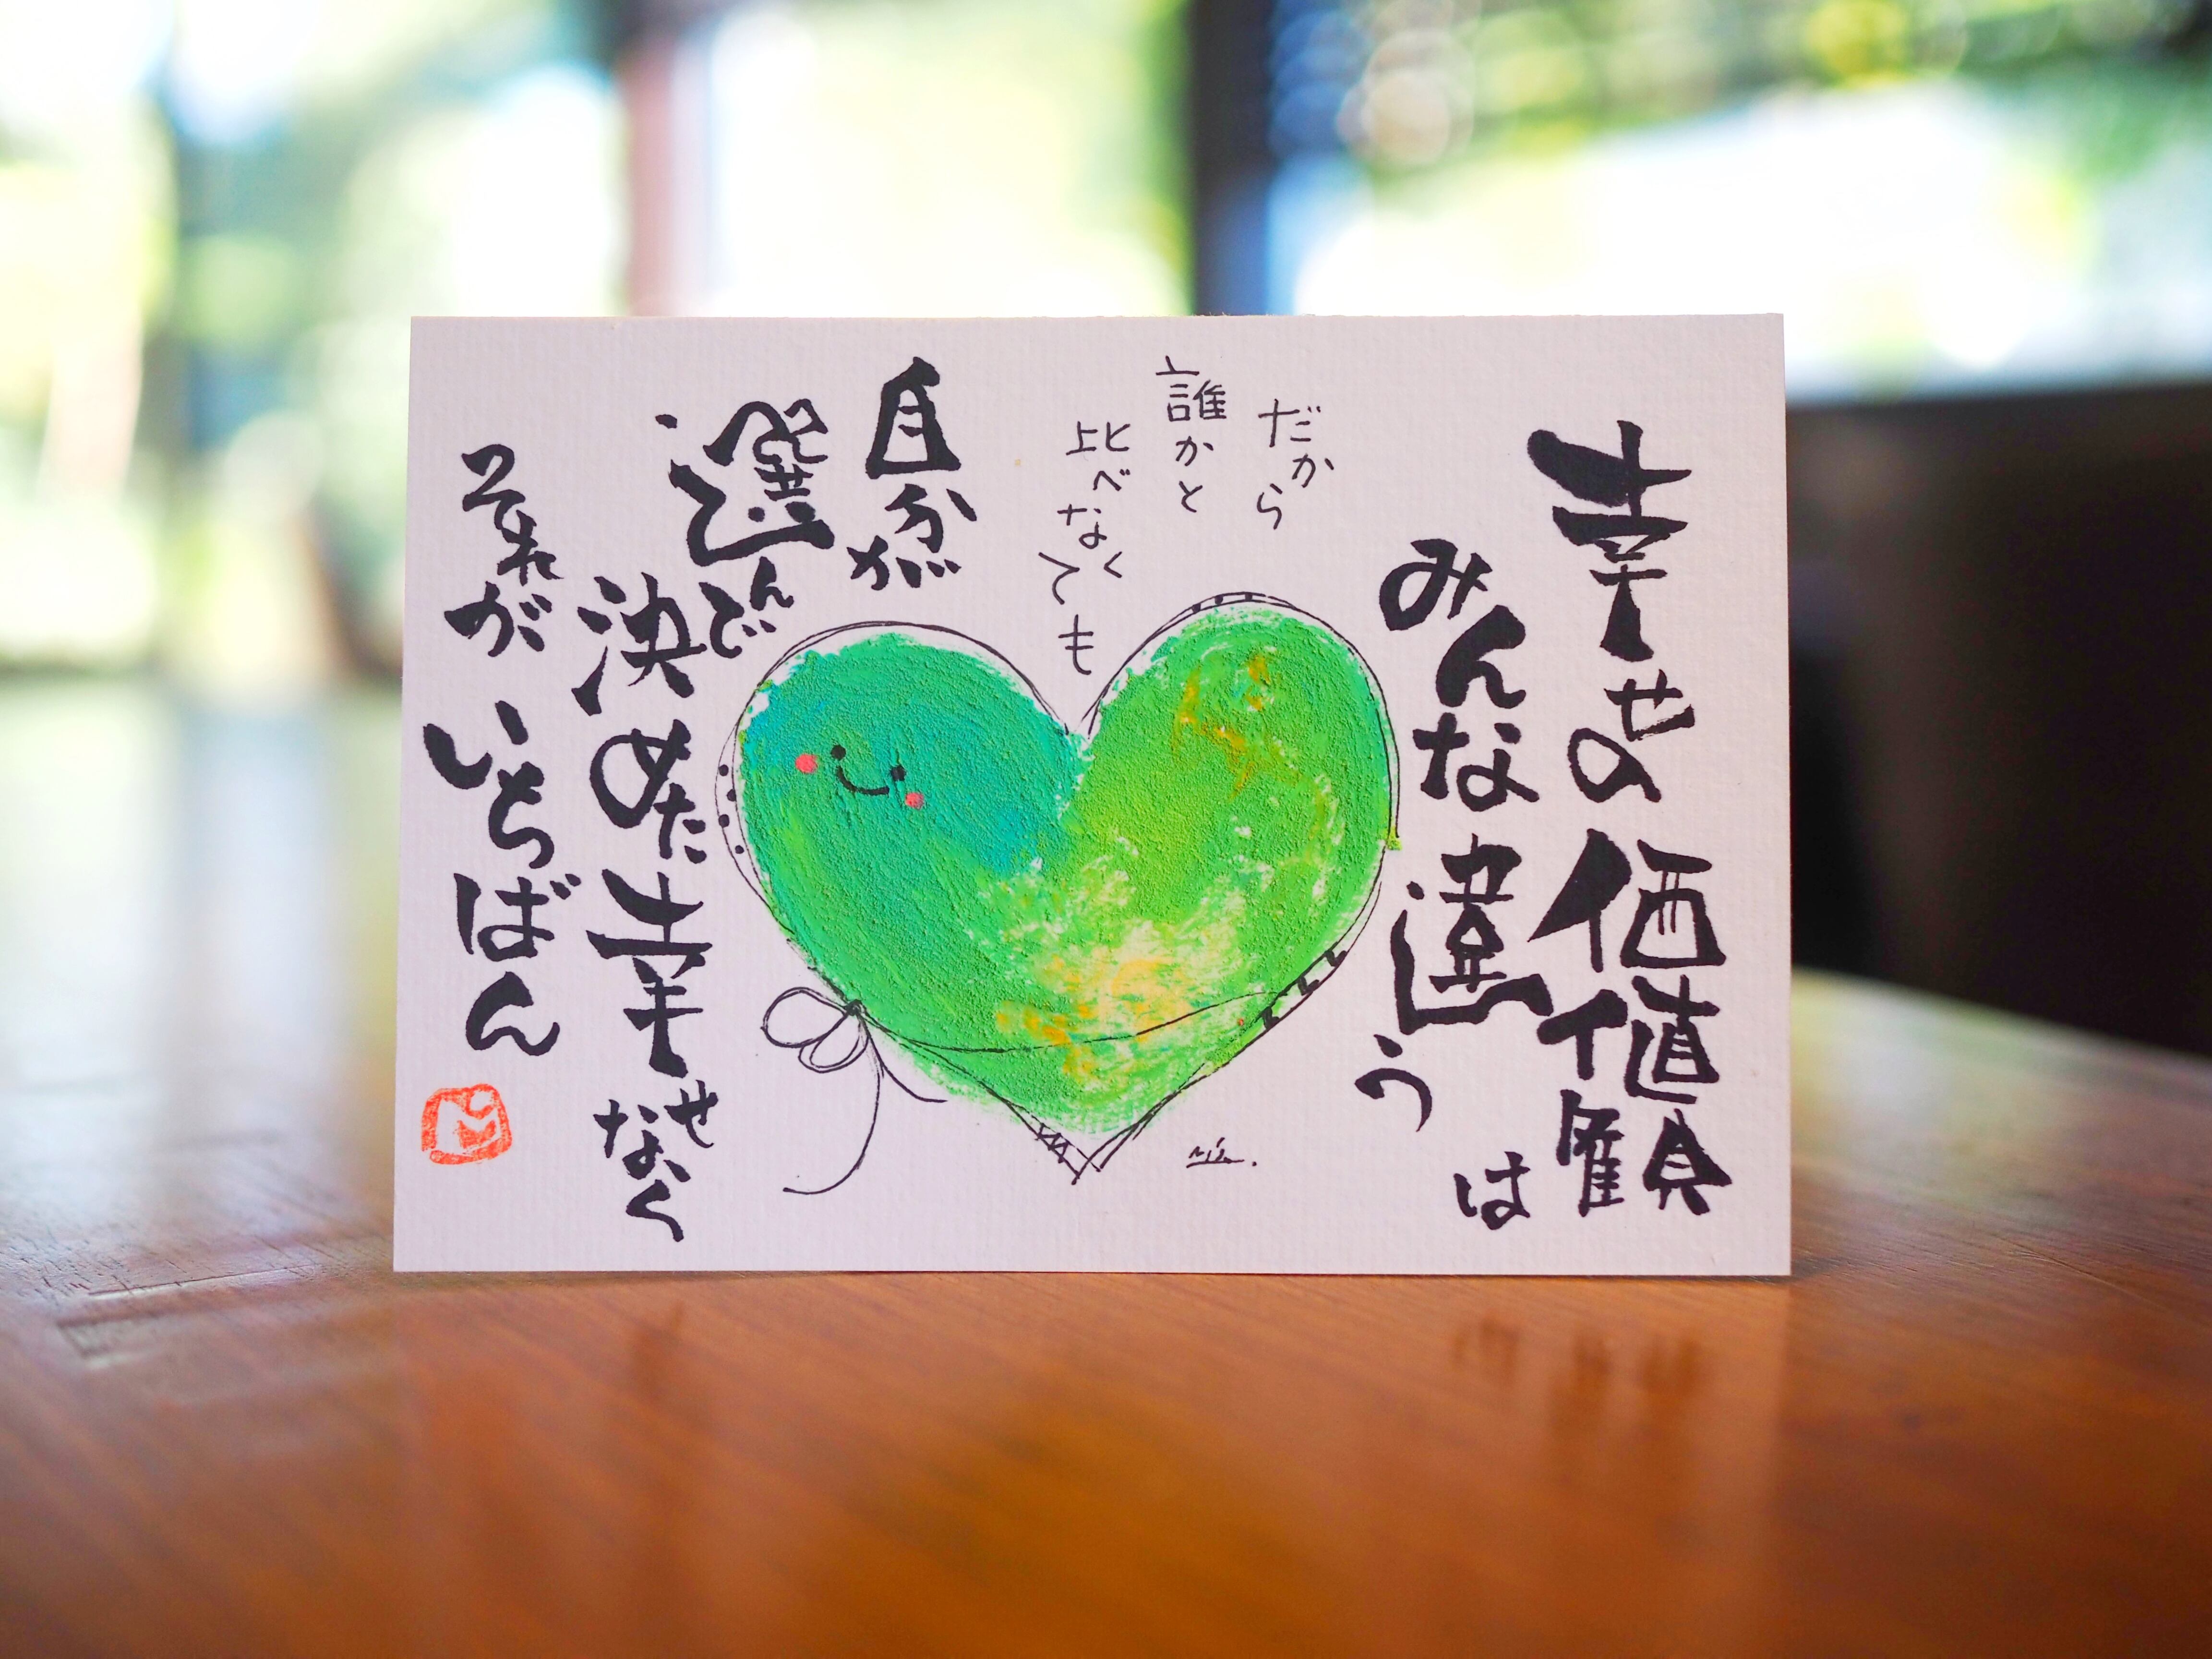 幸せの価値観は
みんな違う
だから
誰かと
比べなくても
自分が
選んで
決めた幸せなく
それが いちばん